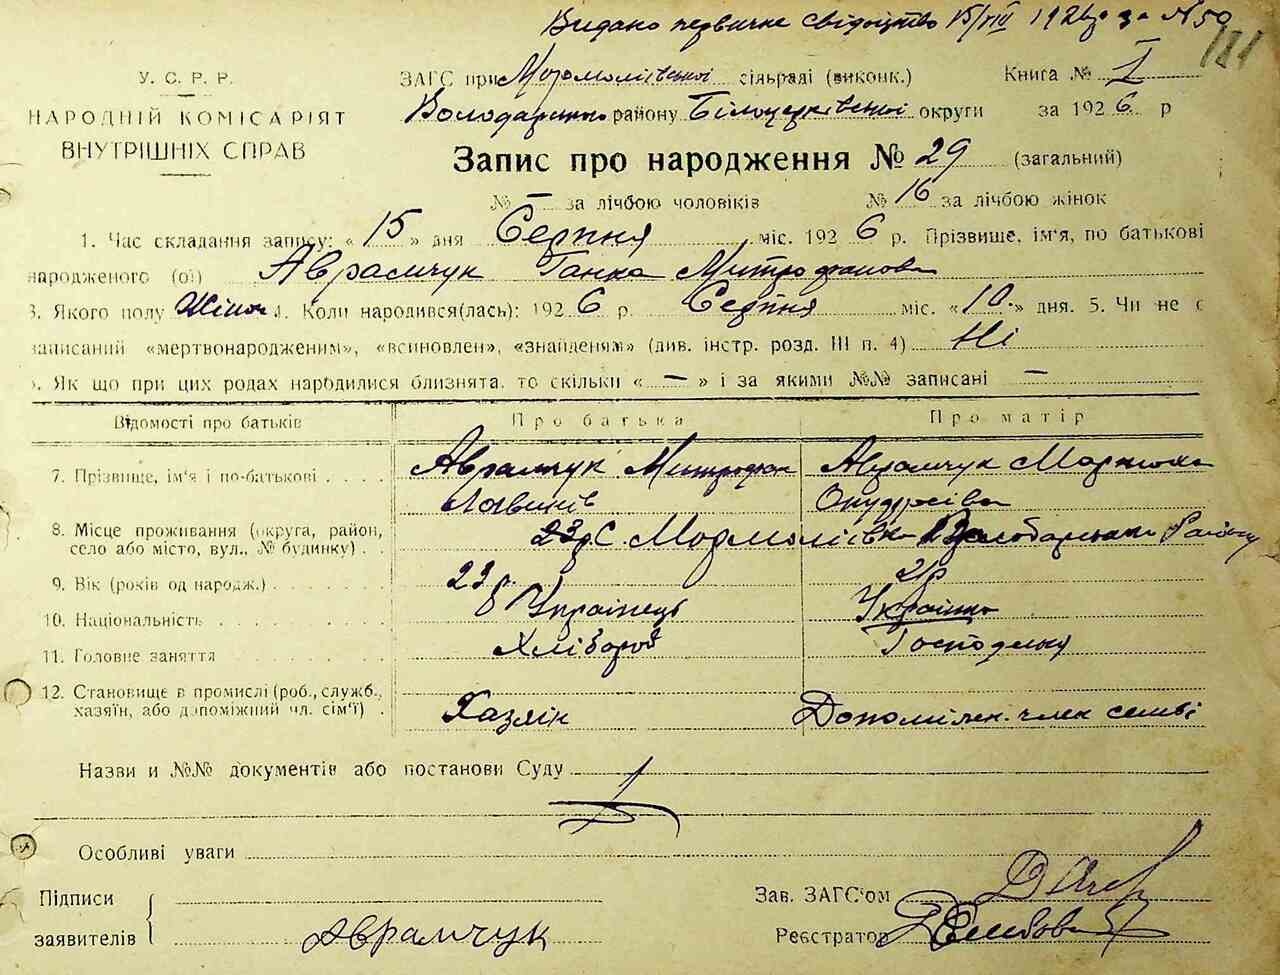 Видано первичне свідоцтво 15/VIII 1926 р за № 50
181
У. С. Р. Р.
НАРОДНІЙ КОМІСАРІЯТ
ВНУТРІШНІХ СПРАВ
ЗАГС при сільраді (виконк.) Книга № I
району Білоцерківської округи за 1926 р
Запис про народження № 29 (загальний)
№ — за лічбою чоловіків № 16 за лічбою жінок
1. Час складання запису: « 15 » дня Серпня міс. 1926 р. Прізвище, ім'я, по батькові
народженого (ої) Аврамчук Ганка Митрофанова
3. Якого полу Жіноч. Коли народився(лась): 1926 р. Серпня міс. « 10 » дня. 5. Чи не є
записаний «мертвонародженим», «всиновлен», «знайденям» (див. інстр. розд. III п. 4) Ні
. Як що при цих родах народилися близнята, то скільки « — » і за якими №№ записані —
Відомості про батьків Про батька Про матір
7. Прізвище, ім'я і по-батькові Аврамчук Митрофан Аврамчук
Логвинів
8. Місце проживання (округа, район,
село або місто, вул., № будинку) с. району
9. Вік (років од народж.) 23 р. 21р
10. Національність Українець Українка
11. Головне заняття Хлібороб Господиня
12. Становище в промислі (роб., служб.,
хазяїн, або допоміжний чл. сім'ї) Хазяін Допоміжн. член семьі
Назви и №№ документів або постанови Суду
Особливі уваги
Підписи
заявителів Аврамчук
Зав. ЗАГС'ом
Реєстратор